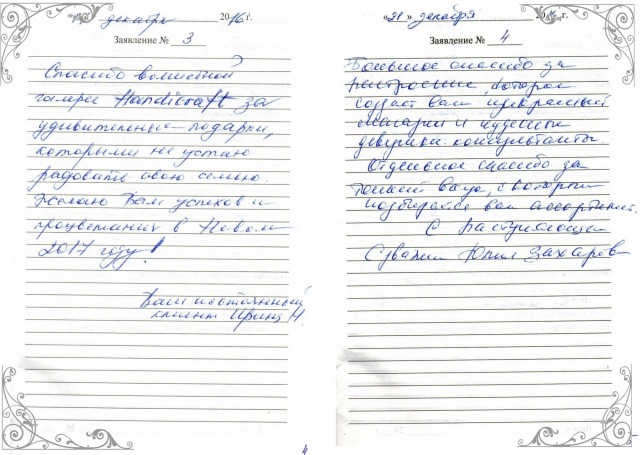 декабря 2016 г.
Заявление № 3
Спасибо волшебной
галерее Handicraft за
удивительные подарки,
которыми не устаю
радовать свою семью.
Желаю Вам успехов и
процветания в Новом
2017 году!
Ваш постоянный
клиент Ирина Н.
4
«21» декабря 20 г.
Заявление № 4
Большое спасибо за
настроение, которое
создает ваш прекрасный
магазин и чудесные
девушки-консультанты.
Отдельное спасибо за
тонкий вкус, с которым
подбирается ваш ассортимент.
С наступающим
С уваж. Юлия Захарова